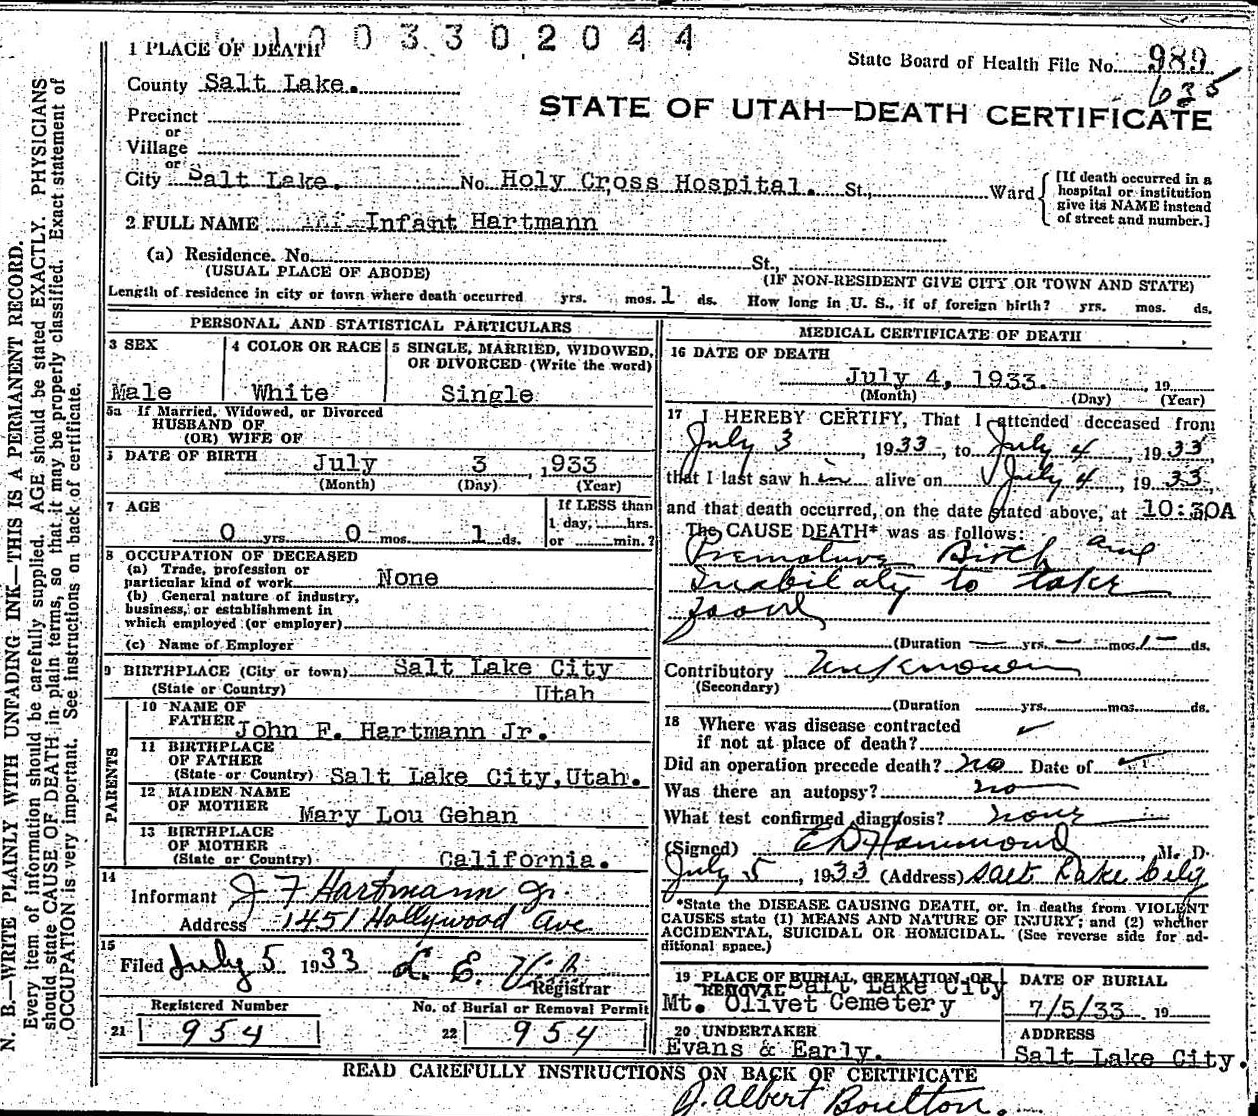 1003302044
1 PLACE OF DEATH
State Board of Health File No. 989
635
County Salt Lake.
STATE OF UTAH—DEATH CERTIFICATE
Precinct
or
Village
or
City Salt Lake. No. Holy Cross Hospital. St., Ward
[If death occurred in a
hospital or institution
give its NAME instead
of street and number.]
2 FULL NAME Infant Hartmann
(a) Residence. No. St.,
(USUAL PLACE OF ABODE) (IF NON-RESIDENT GIVE CITY OR TOWN AND STATE)
Length of residence in city or town where death occurred yrs. mos. 1 ds. How long in U. S., if of foreign birth? yrs. mos. ds.
PERSONAL AND STATISTICAL PARTICULARS
3 SEX 4 COLOR OR RACE 5 SINGLE, MARRIED, WIDOWED,
OR DIVORCED (Write the word)
Male White Single
5a If Married, Widowed, or Divorced
HUSBAND OF
(OR) WIFE OF
DATE OF BIRTH July 3 ,1933
(Month) (Day) (Year)
7 AGE If LESS than
1 day, hrs.
0 yrs. 0 mos. 1 ds. or min.?
8 OCCUPATION OF DECEASED
(a) Trade, profession or
particular kind of work None
(b) General nature of industry,
business, or establishment in
which employed (or employer)
(c) Name of Employer
9 BIRTHPLACE (City or town) Salt Lake City
(State or Country) Utah
PARENTS
10 NAME OF
FATHER John F. Hartmann Jr.
11 BIRTHPLACE
OF FATHER
(State or Country) Salt Lake City, Utah.
12 MAIDEN NAME
OF MOTHER Mary Lou Gehan
13 BIRTHPLACE
OF MOTHER
(State or Country) California.
14
Informant J F Hartmann Jr.
Address 1451 Hollywood Ave
15
Filed July 5 1933 L. E.
Registrar
Registered Number No. of Burial or Removal Permit
21 954 22 954
MEDICAL CERTIFICATE OF DEATH
16 DATE OF DEATH
July 4, 1933. 19
(Month) (Day) (Year)
17 I HEREBY CERTIFY, That I attended deceased from
July 3, 1933, to July 4, 1933,
that I last saw him alive on July 4, 1933,
and that death occurred, on the date stated above, at 10:30A
The CAUSE DEATH* was as follows:
Premature Birth and
Inability to take
food
(Duration — yrs. — mos. 1 — ds.
Contributory Unknown
(Secondary)
(Duration yrs. mos. ds.
18 Where was disease contracted
if not at place of death? ✓
Did an operation precede death? no Date of ✓
Was there an autopsy? no
What test confirmed diagnosis? none
(Signed) E D Hammond, M. D.
July 5, 1933 (Address) Salt Lake City
*State the DISEASE CAUSING DEATH, or, in deaths from VIOLENT
CAUSES state (1) MEANS AND NATURE OF INJURY; and (2) whether
ACCIDENTAL, SUICIDAL OR HOMICIDAL. (See reverse side for ad-
ditional space.)
19 PLACE OF BURIAL, CREMATION, OR
REMOVAL Salt Lake City
Mt. Olivet Cemetery
DATE OF BURIAL
7/5/33 19
20 UNDERTAKER
Evans & Early.
ADDRESS
Salt Lake City.
READ CAREFULLY INSTRUCTIONS ON BACK OF CERTIFICATE
J. Albert Boulton.
N. B.—WRITE PLAINLY WITH UNFADING INK—THIS IS A PERMANENT RECORD.
Every item of information should be carefully supplied. AGE should be stated EXACTLY. PHYSICIANS
should state CAUSE OF DEATH in plain terms, so that it may be properly classified. Exact statement of
OCCUPATION is very important. See instructions on back of certificate.